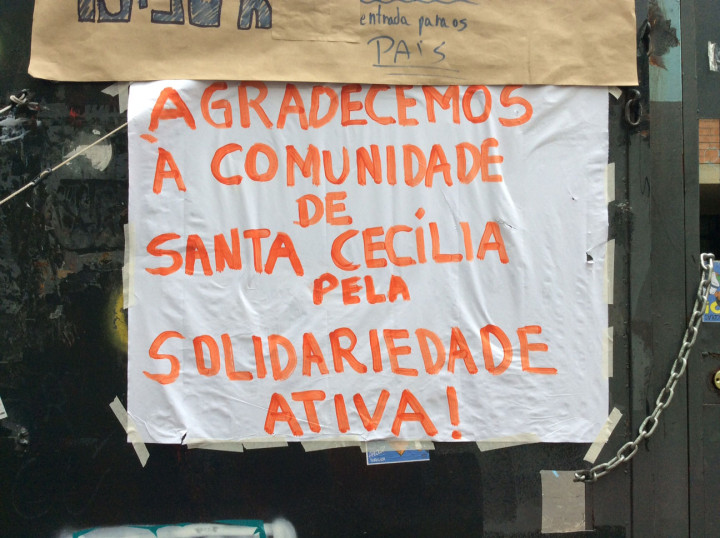 entrada para os
PAIS
AGRADECEMOS
À COMUNIDADE
DE
SANTA CECÍLIA
PELA
SOLIDARIEDADE
ATIVA!